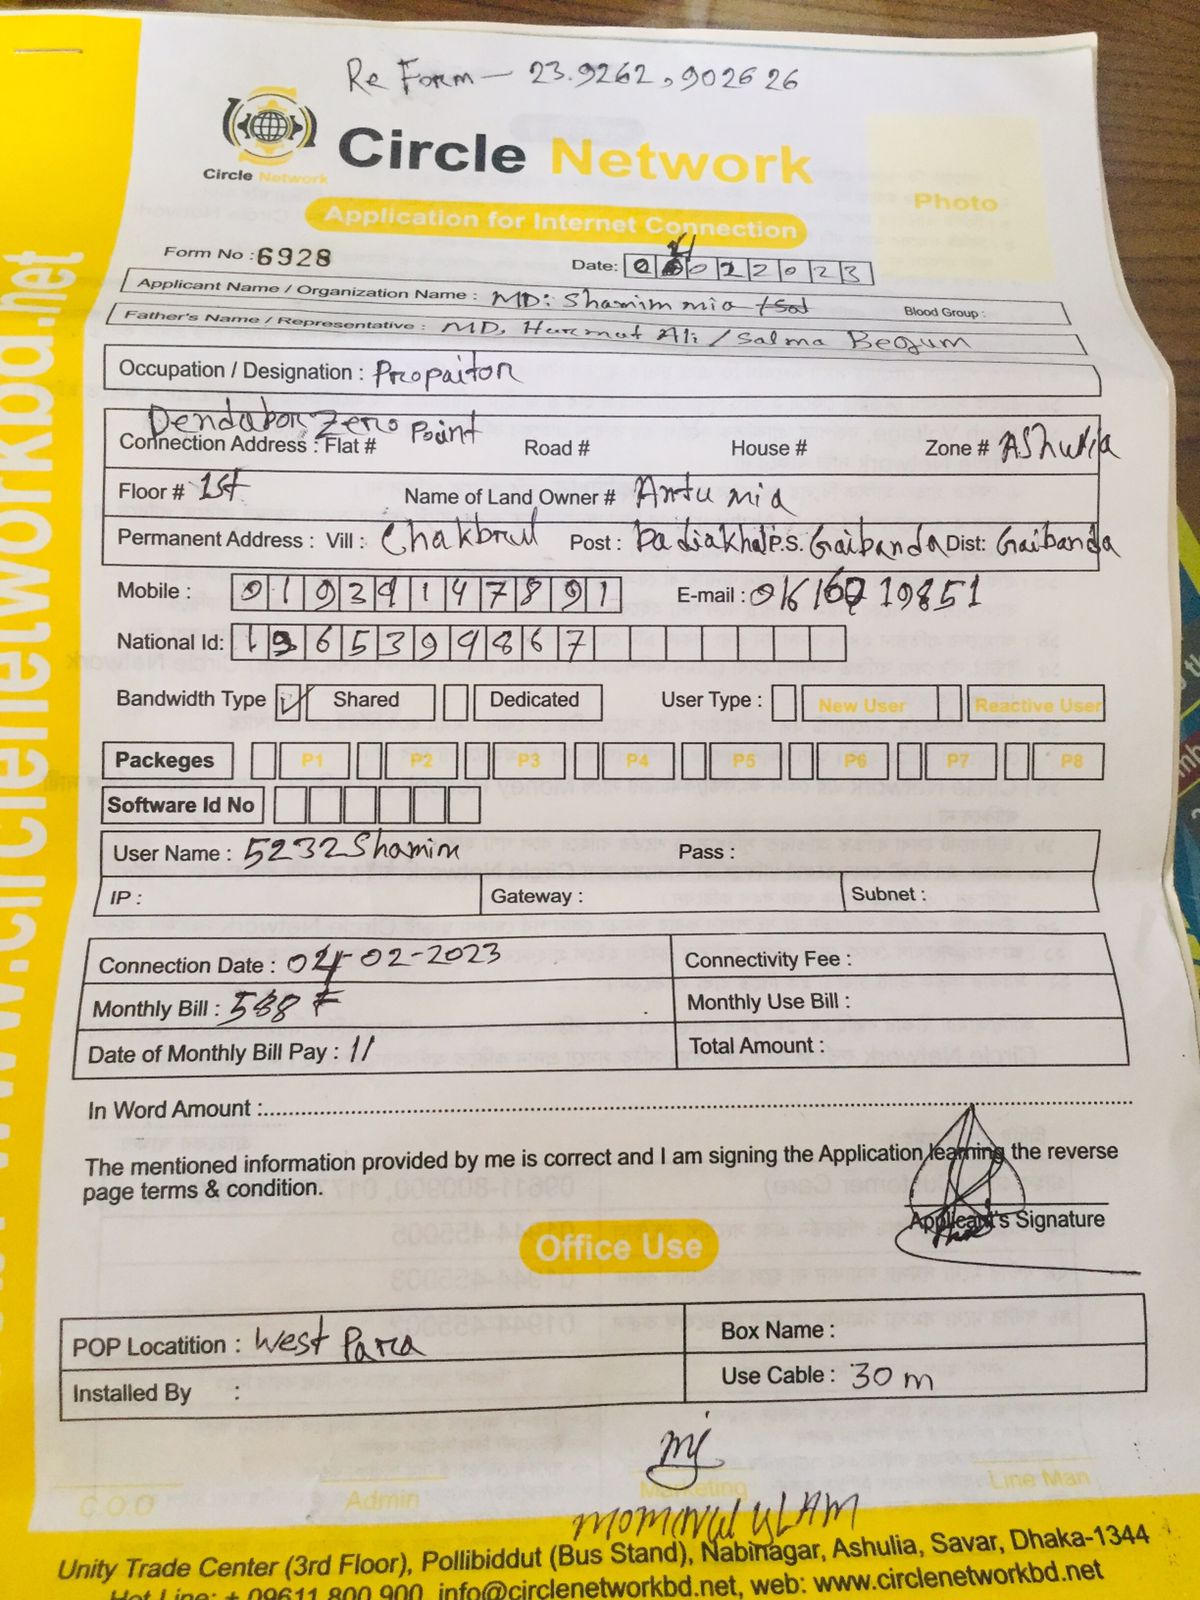 Re Form - 23.9262,902626
Circle Network
Circle Network
Photo
Application for Internet Connection
Form No : 6928
Date: 04022023
Applicant Name / Organization Name : MD: Shamim mia
Blood Group :
Father's Name / Representative : MD, Hurmut Ali / Salma Begum
Occupation / Designation : Propaitor
Dendabor Zero Point
Connection Address : Flat # Road # House # Zone # AShulia
Floor # 1st Name of Land Owner # Antu mia
Permanent Address : Vill : Chakbrul Post : Dadiakhal P.S. Gaibanda Dist: Gaibanda
Mobile : 01939147891 E-mail : 01616719851
National Id: 1965399867
Bandwidth Type Shared Dedicated User Type : New User Reactive User
Packeges P1 P2 P3 P4 P5 P6 P7 P8
Software Id No
User Name : 5232Shamim Pass :
IP : Gateway : Subnet :
Connection Date : 04-02-2023 Connectivity Fee :
Monthly Bill : 588 Monthly Use Bill :
Date of Monthly Bill Pay : 11 Total Amount :
In Word Amount :
The mentioned information provided by me is correct and I am signing the Application learning the reverse
page terms & condition.
Applicant's Signature
Office Use
POP Locatition : West Para Box Name :
Installed By : Use Cable : 30 m
C.O.O Admin Marketing Line Man
Unity Trade Center (3rd Floor), Pollibiddut (Bus Stand), Nabinagar, Ashulia, Savar, Dhaka-1344
Hot Line: + 09611 800 900, info@circlenetworkbd.net, web: www.circlenetworkbd.net
www.circlenetworkbd.net